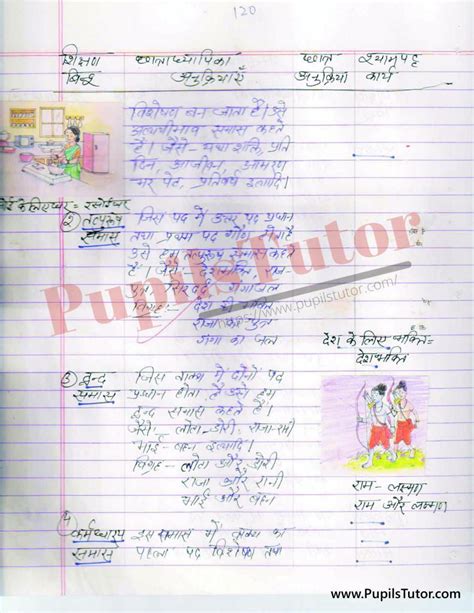 120
शिक्षण छात्राध्यापिका छात्र श्यामपट्ट
बिन्दु अनुक्रियाएँ अनुक्रिया कार्य
विशेषण बन जाता है। उसे
अव्ययीभाव समास कहते
है। जैसे- यथाशक्ति, प्रति
दिन, आजीवन, आमरण
भर पेट, प्रतिवर्ष इत्यादि।
के लिए घर = रसोईघर
② तत्पुरुष जिस पद में उत्तर पद प्रधान
समास तथा प्रथम पद गौण होता है
उसे हम तत्पुरुष समास कहते
है। जैसे देशभक्ति, राज-
पुत्र, सिरदर्द, गंगाजल
विग्रह:- देश की भक्ति
राजा का पुत्र
गंगा का जल
देश के लिए भक्ति=
देशभक्ति
③ द्वन्द्व जिस वाक्य में दोनों पद
समास प्रधान होता है उसे हम
द्वन्द्व समास कहते है।
जैसे:- लोटा-डोरी, राजा-रानी
भाई-बहन इत्यादि।
विग्रह - लोटा और डोरी
राजा और रानी
भाई और बहन
राम-लक्ष्मण
राम और लक्ष्मण
4
कर्मधारय इस समास में वाक्य का
समास पहला पद विशेषण तथा
PupilsTutor
https://www.pupilstutor.com/
www.PupilsTutor.com